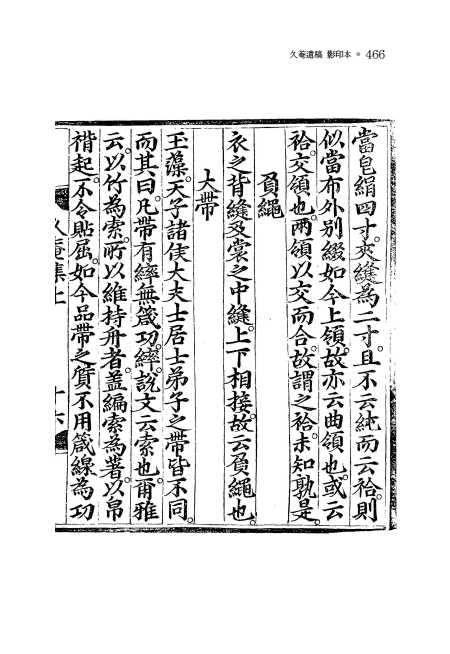 久菴遺稿 影印本 ● 466
當皂絹四寸。夾縫為二寸。且不云純而云袷。則
似當布外別綴如今上領。故亦云曲領也。或云
袷。交領也。兩領以交而合。故謂之袷。未知孰是。
負繩
衣之背縫及裳之中縫。上下相接。故云負繩也。
大帶
玉藻。天子諸侯大夫士居士弟子之帶皆不同。
而其曰。凡帶有繂無箴功。繂。說文云索也。爾雅
云。以竹為索。所以維持舟者。蓋編索為著。以帛
楷起。不令貼屈。如今品帶之質。不用箴線為功
久菴集上
十六